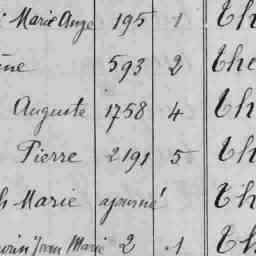 Marie Ange 195 1 Th
593 2 Th
Auguste 1758 4 Th
Pierre 2191 5 Th
Marie ajourné Th
Yvon Marie 2 1 Th